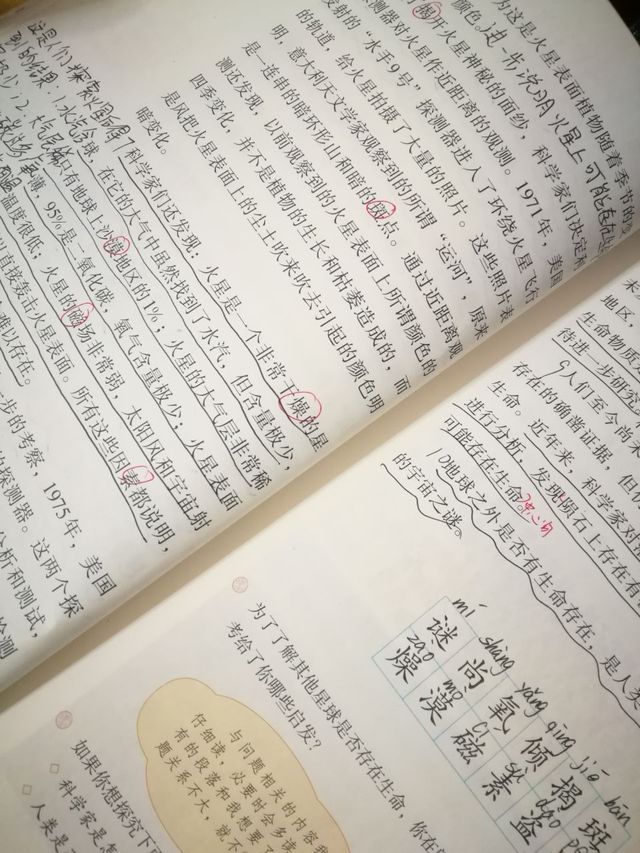 这是人们探索火星所得
到的结果：1.水汽含
为这是火星表面植物随着季节的
颜色。进一步说明火星上可能存在
揭开火星神秘的面纱，科学家们决定利
测器对火星作近距离的观测。1971年，美国
发射的“水手9号”探测器进入了环绕火星飞行
的轨道，给火星拍摄了大量的照片。这些照片表
明，意大利天文学家观察到的所谓“运河”，原来
是一连串的暗环形山和暗的斑点。通过近距离观
测还发现，以前观察到的火星表面上所谓颜色的
四季变化，并不是植物的生长和枯萎造成的，而
是风把火星表面上的尘土吹来吹去引起的颜色明
暗变化。
7科学家们还发现，火星是一个非常干燥的星
球，在它的大气中虽然找到了水汽，但含量极少，
只有地球上沙漠地区的1%；火星的大气层非常稀
薄，95%是二氧化碳，氧气含量极少；火星表面
温度很低；火星的磁场非常弱，太阳风和宇宙射
以直接轰击火星表面。所有这些因素都说明，
难以存在。
一步的考察，1975年，美国
探测器。这两个探
分析和测试，
检测
来
地区，
生命物质
待进一步研究
9人们至今尚未
存在的确凿证据，但
生命。近年来，科学家对
进行分析，发现陨石上存在有
可能存在生命。中心句
10地球之外是否有生命存在，是人类
的宇宙之谜。
mí shàng yǎng qīng jiē bān
谜 尚 氧 倾 揭 斑
zào mò cí sù dào
燥 漠 磁 素 盗
为了了解其他星球是否存在生命，
考给了你哪些启发？
与问题相关的内容我
仔细读，必要时会多读
有的段落和我想要了
题关系不大，就不
如果你想探究下
科学家是怎
人类是
你在